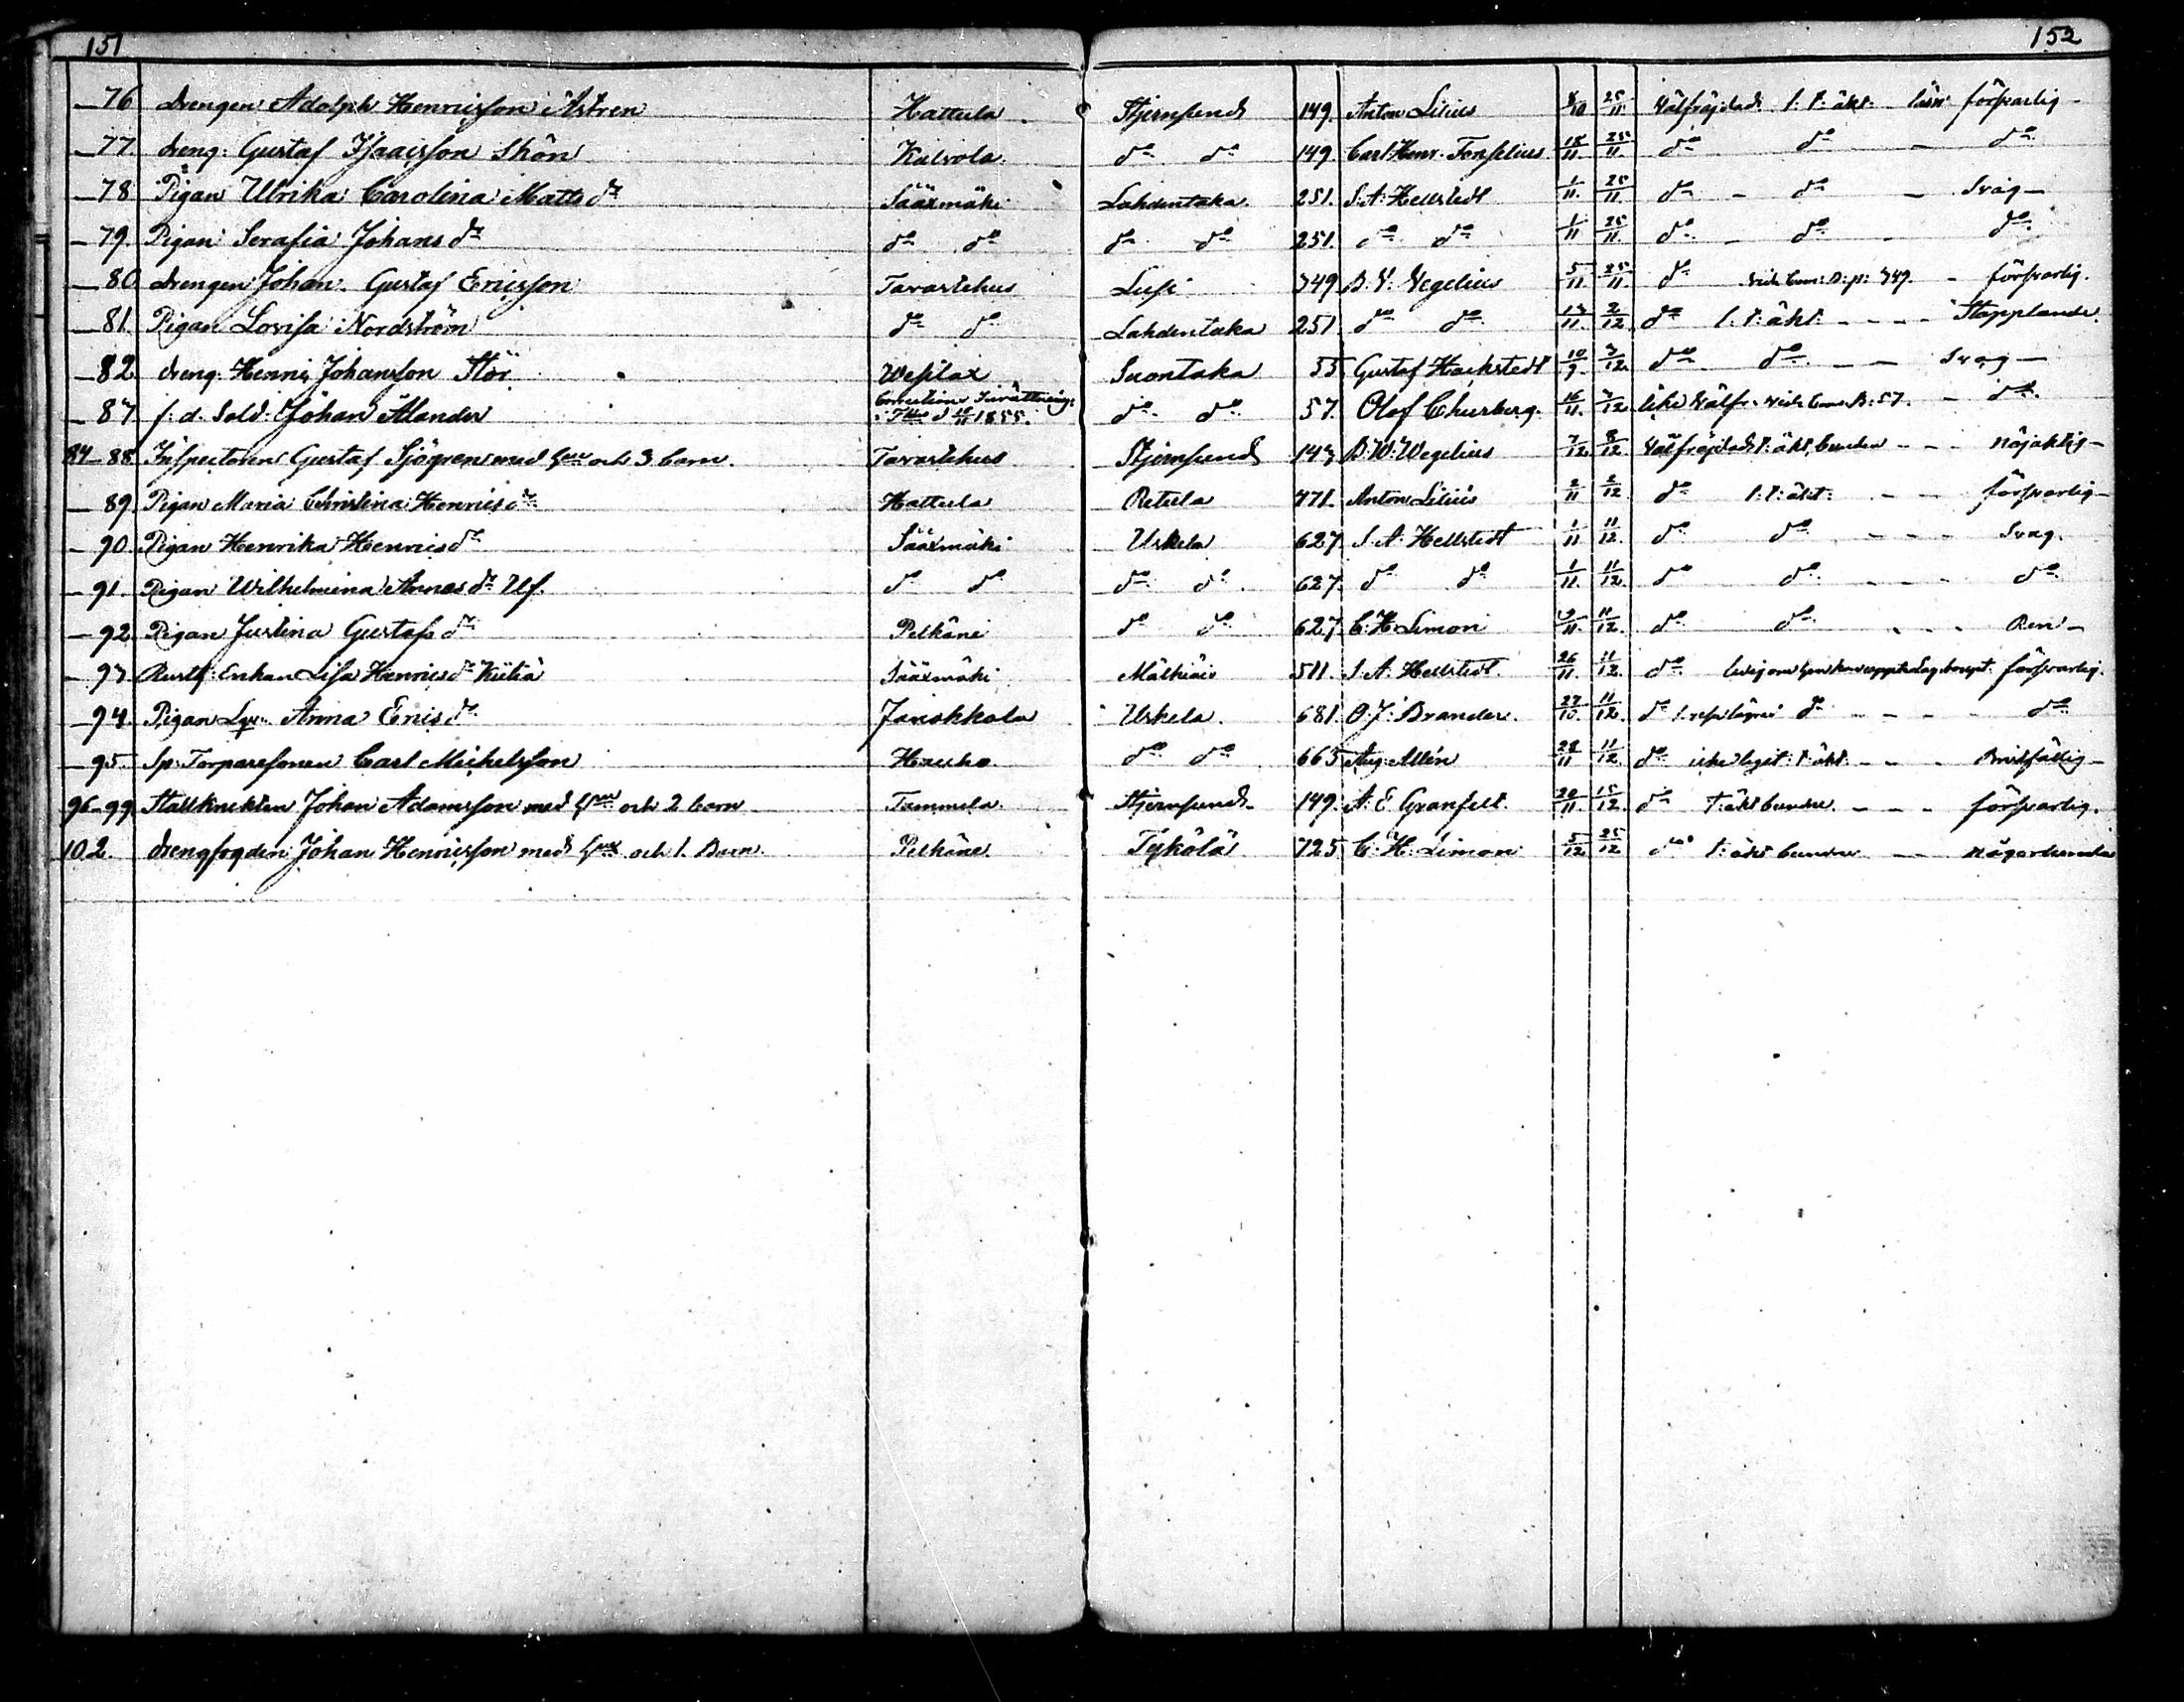 151 152
76 Drengen Adolph Henricsson Åstren Hattula Stjernsund 149. Anton Lilius 8/10 25/11 Wälfräjdad l: t: äkt. läsn: försvarlig
77. dreng: Gustaf Isaacsson Skön Kalvola d:o d:o 149. Carl Henr. Forselius 18/11 25/11 d:o d:o d:o
78 Pigan Ulrika Carolina Mattsd:r Sääxmäki Lahdentaka. 251. S: A: Hellstedt 1/11. 25/11 d:o d:o Svag
79. Pigan Serafia Johansd:r d:o d:o d:o d:o 251. d:o d:o 1/11 25/11. d:o d:o d:o
80 Drengen Johan Gustaf Ericsson Tavastehus Lusi 349 B. W. Wegelius 5/11. 25/11. d:o vide Com: B: p: 349. försvarlig.
81. Pigan Lovisa Nordström d:o d:o Lahdentaka 251 d:o d:o 13/11. 2/12 d:o l: t: äkt: Stapplande.
82 dreng: Henric Johansson Stör Westlax Suontaka 55 Gustaf Hackstedt 10/9 3/12 d:o d:o Svag
83 f: d. Sold: Johan Ålander Corrections Inrättning: d 1855. d:o d:o 57. Olof Churberg. 16/11. 3/12 icke Wälfr. vide Com. B: 57. d:o
84-88 Inspectoren Gustaf Sjögren med h:u och 3 barn. Tavastehus Stjernsund 143 B: W: Wegelius 7/12 8/12 Wälfräjdad t: äkt bunden nöjaktig
89. Pigan Maria Christina Henricsd:r Hattula Retula 471. Anton Lilius 2/11 2/12 d:o l: t: äkt: försvarlig
90. Pigan Henrika Henricsd:r Sääxmäki Uskela 627. S. A. Hellstedt 1/11 11/12. d:o d:o Svag.
91. Pigan Wilhelmina Annasd:r Uf. d:o d:o d:o d:o 627. d:o d:o 1/11. 11/12. d:o d:o d:o
92. Pigan Justina Gustafsd:r Pelkäne d:o d:o 627. C. H. Limon 9/11. 11/12. d:o d:o Ren
93. Rustf: Enkan Lisa Henricsd:r Kutia Sääxmäki Mälkiäis 511. S. A. Hellstedt. 26/11. 11/12. d:o försvarlig.
94. Pigan Anna Ericsd:r Janakkala Uskela. 681. O. J: Brander. 27/10. 11/12 d:o d:o d:o
95. Sp: Torparesonen Carl Michelsson Hauho d:o d:o 665 Aug: Allén 28/11 11/12. d:o icke legit: t: äkt. Bristfällig
96-99 Stallknekten Johan Adamsson med h:u och 2 barn Tammela Stjernsund 149. A. E. Granfelt 20/11. 15/12. d:o t: äkt bunden. försvarlig.
102. Drengfogden Johan Henricsson med h:u och 1. Barn. Pelkäne. Tykölä 725 C. H: Limon 5/12 25/12 d:o t: äkt bunden någorlunda